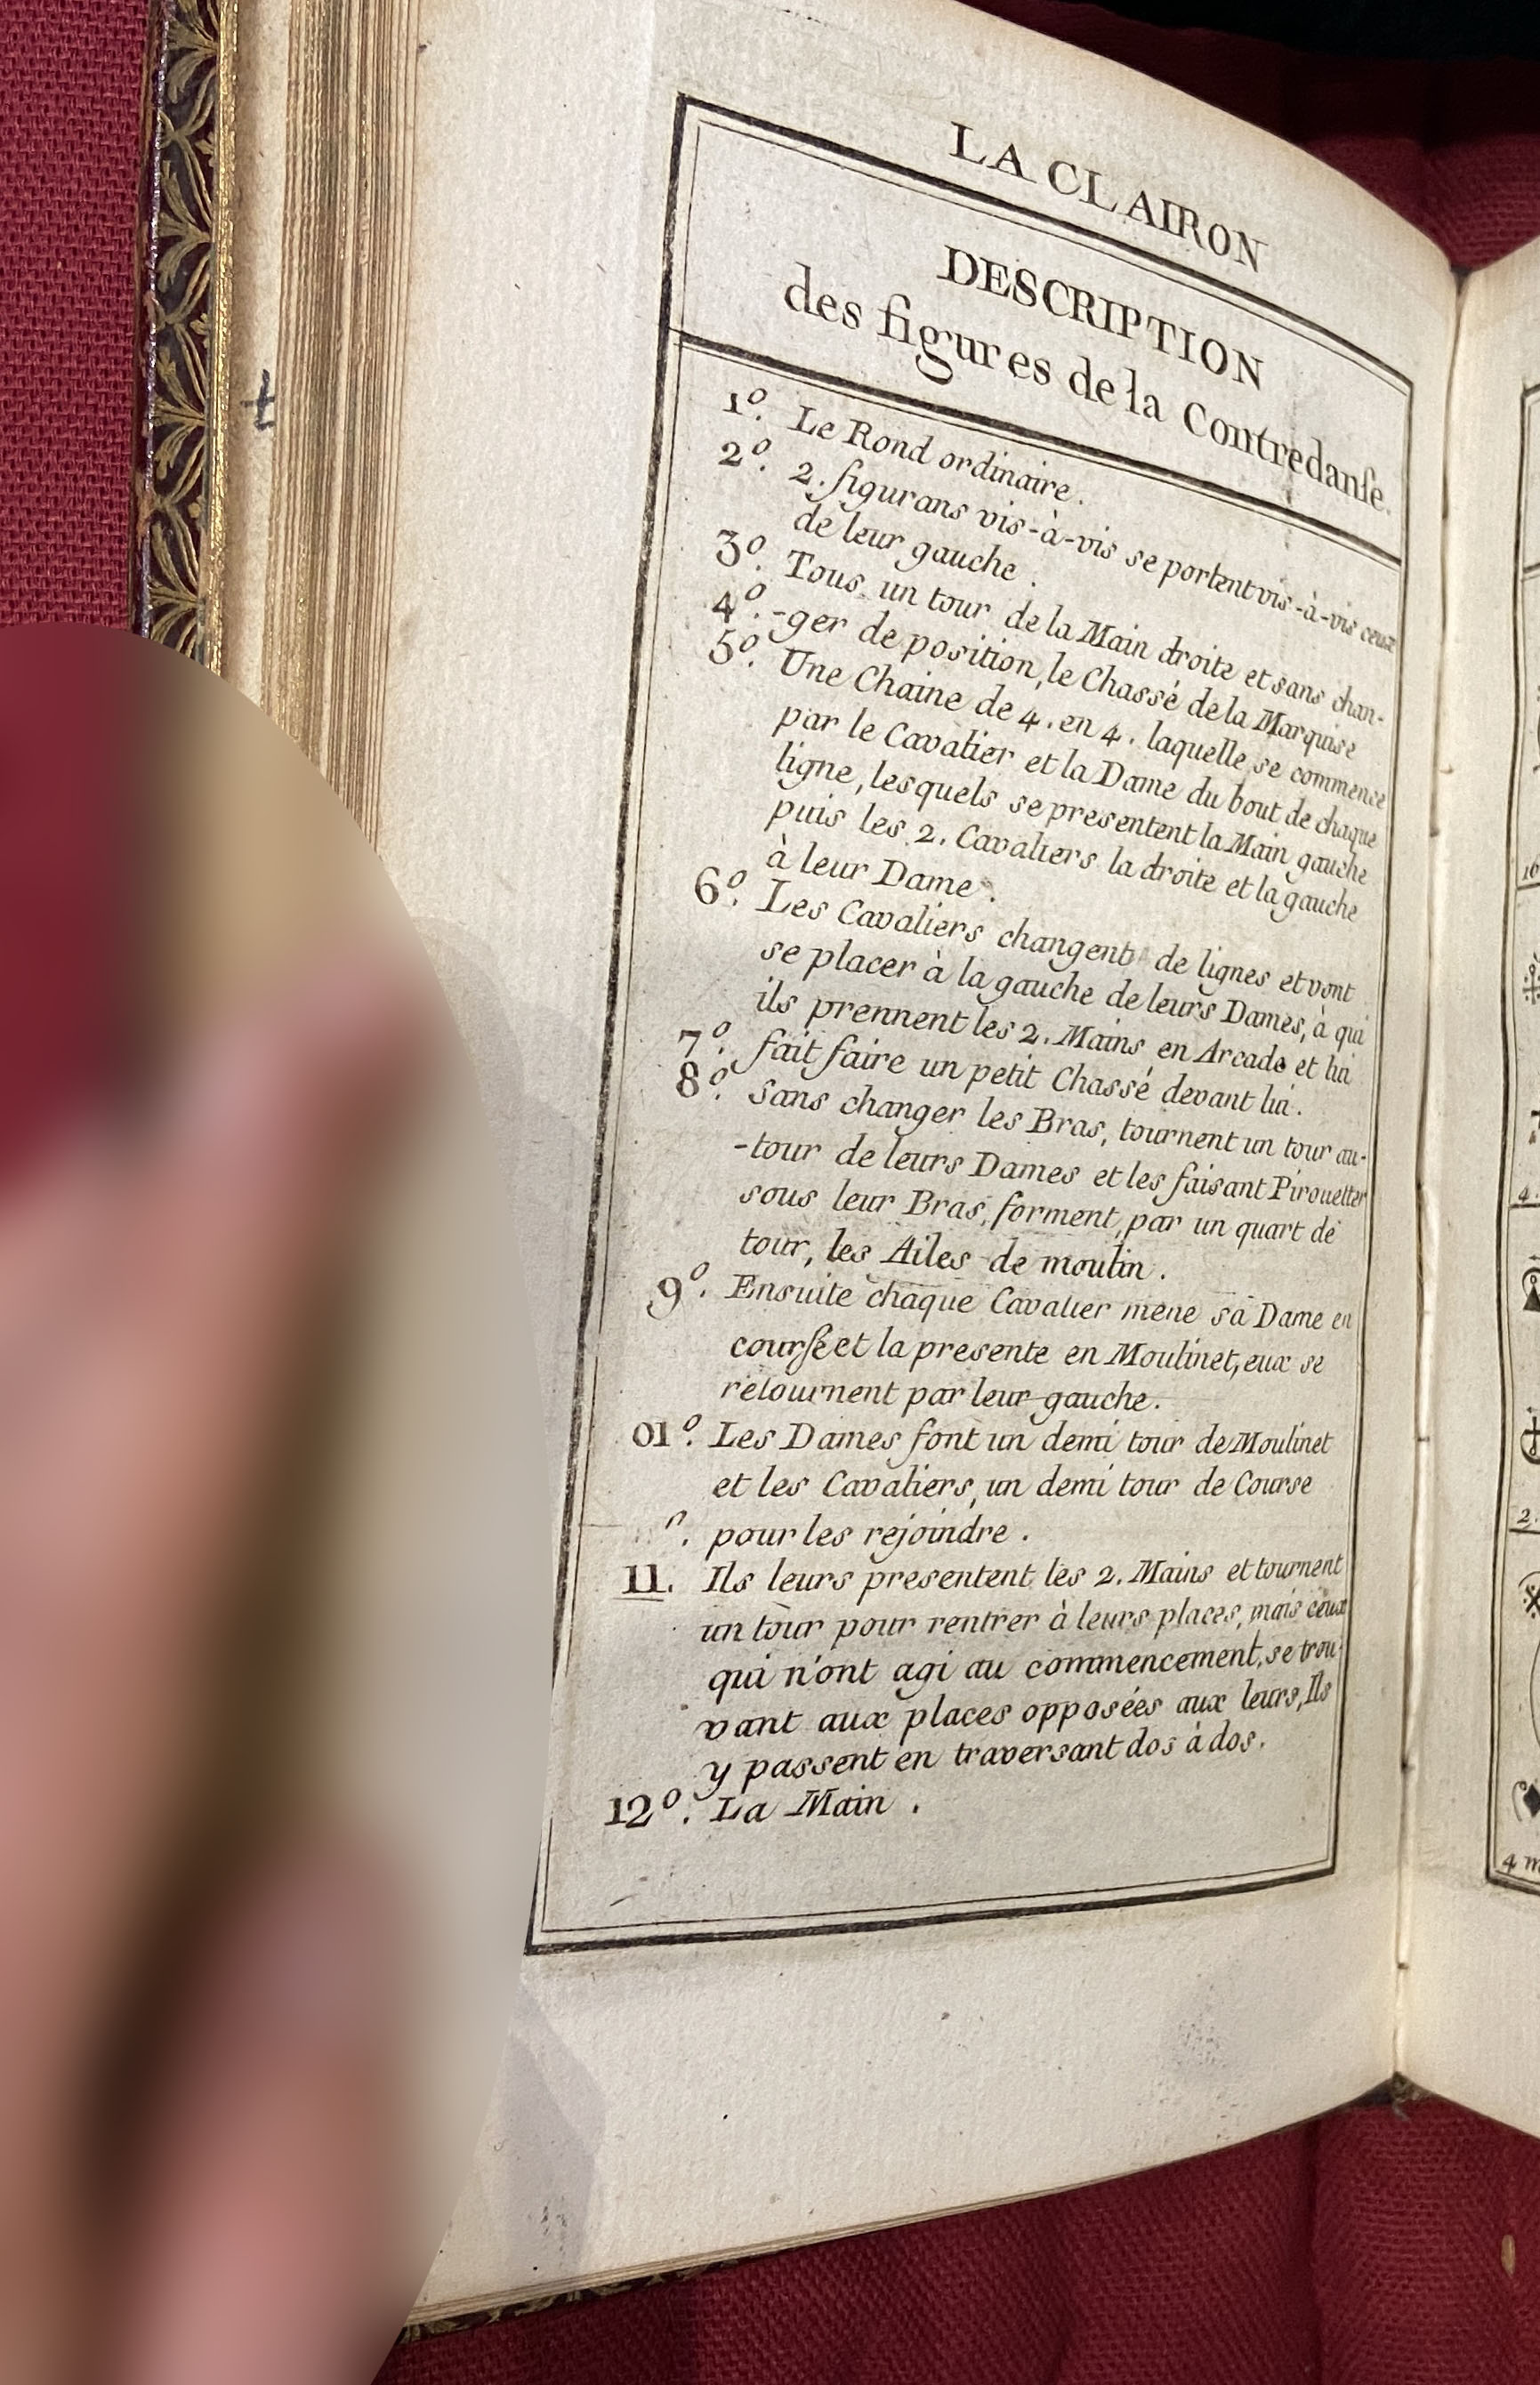 LA CLAIRON
DESCRIPTION
des figures de la Contredanſe.
1º. Le Rond ordinaire.
2º. 2. figurans vis-à-vis se portent vis-à-vis ceux
de leur gauche.
3º. Tous un tour de la Main droite et sans chan-
4º. -ger de position, le Chassé de la Marquise
5º. Une Chaine de 4. en 4. laquelle se commence
par le Cavalier et la Dame du bout de chaque
ligne, lesquels se presentent la Main gauche
puis les 2. Cavaliers la droite et la gauche
à leur Dame.
6º. Les Cavaliers changent de lignes et vont
se placer à la gauche de leurs Dames, à qui
ils prennent les 2. Mains en Arcade et lui
7º. fait faire un petit Chassé devant lui.
8º. Sans changer les Bras, tournent un tour au-
-tour de leurs Dames et les faisant Pirouetter
sous leur Bras, forment, par un quart de
tour, les Ailes de moulin.
9º. Ensuite chaque Cavalier mene sa Dame en
courſe et la presente en Moulinet, eux se
retournent par leur gauche.
01º. Les Dames font un demi tour de Moulinet
et les Cavaliers, un demi tour de Course
pour les rejoindre.
11. Ils leurs presentent les 2. Mains et tournent
un tour pour rentrer à leurs places, mais ceux
qui n'ont agi au commencement, se trou-
vant aux places opposées aux leurs, Ils
y passent en traversant dos à dos.
12º. La Main.
16
4.
2.
4 m